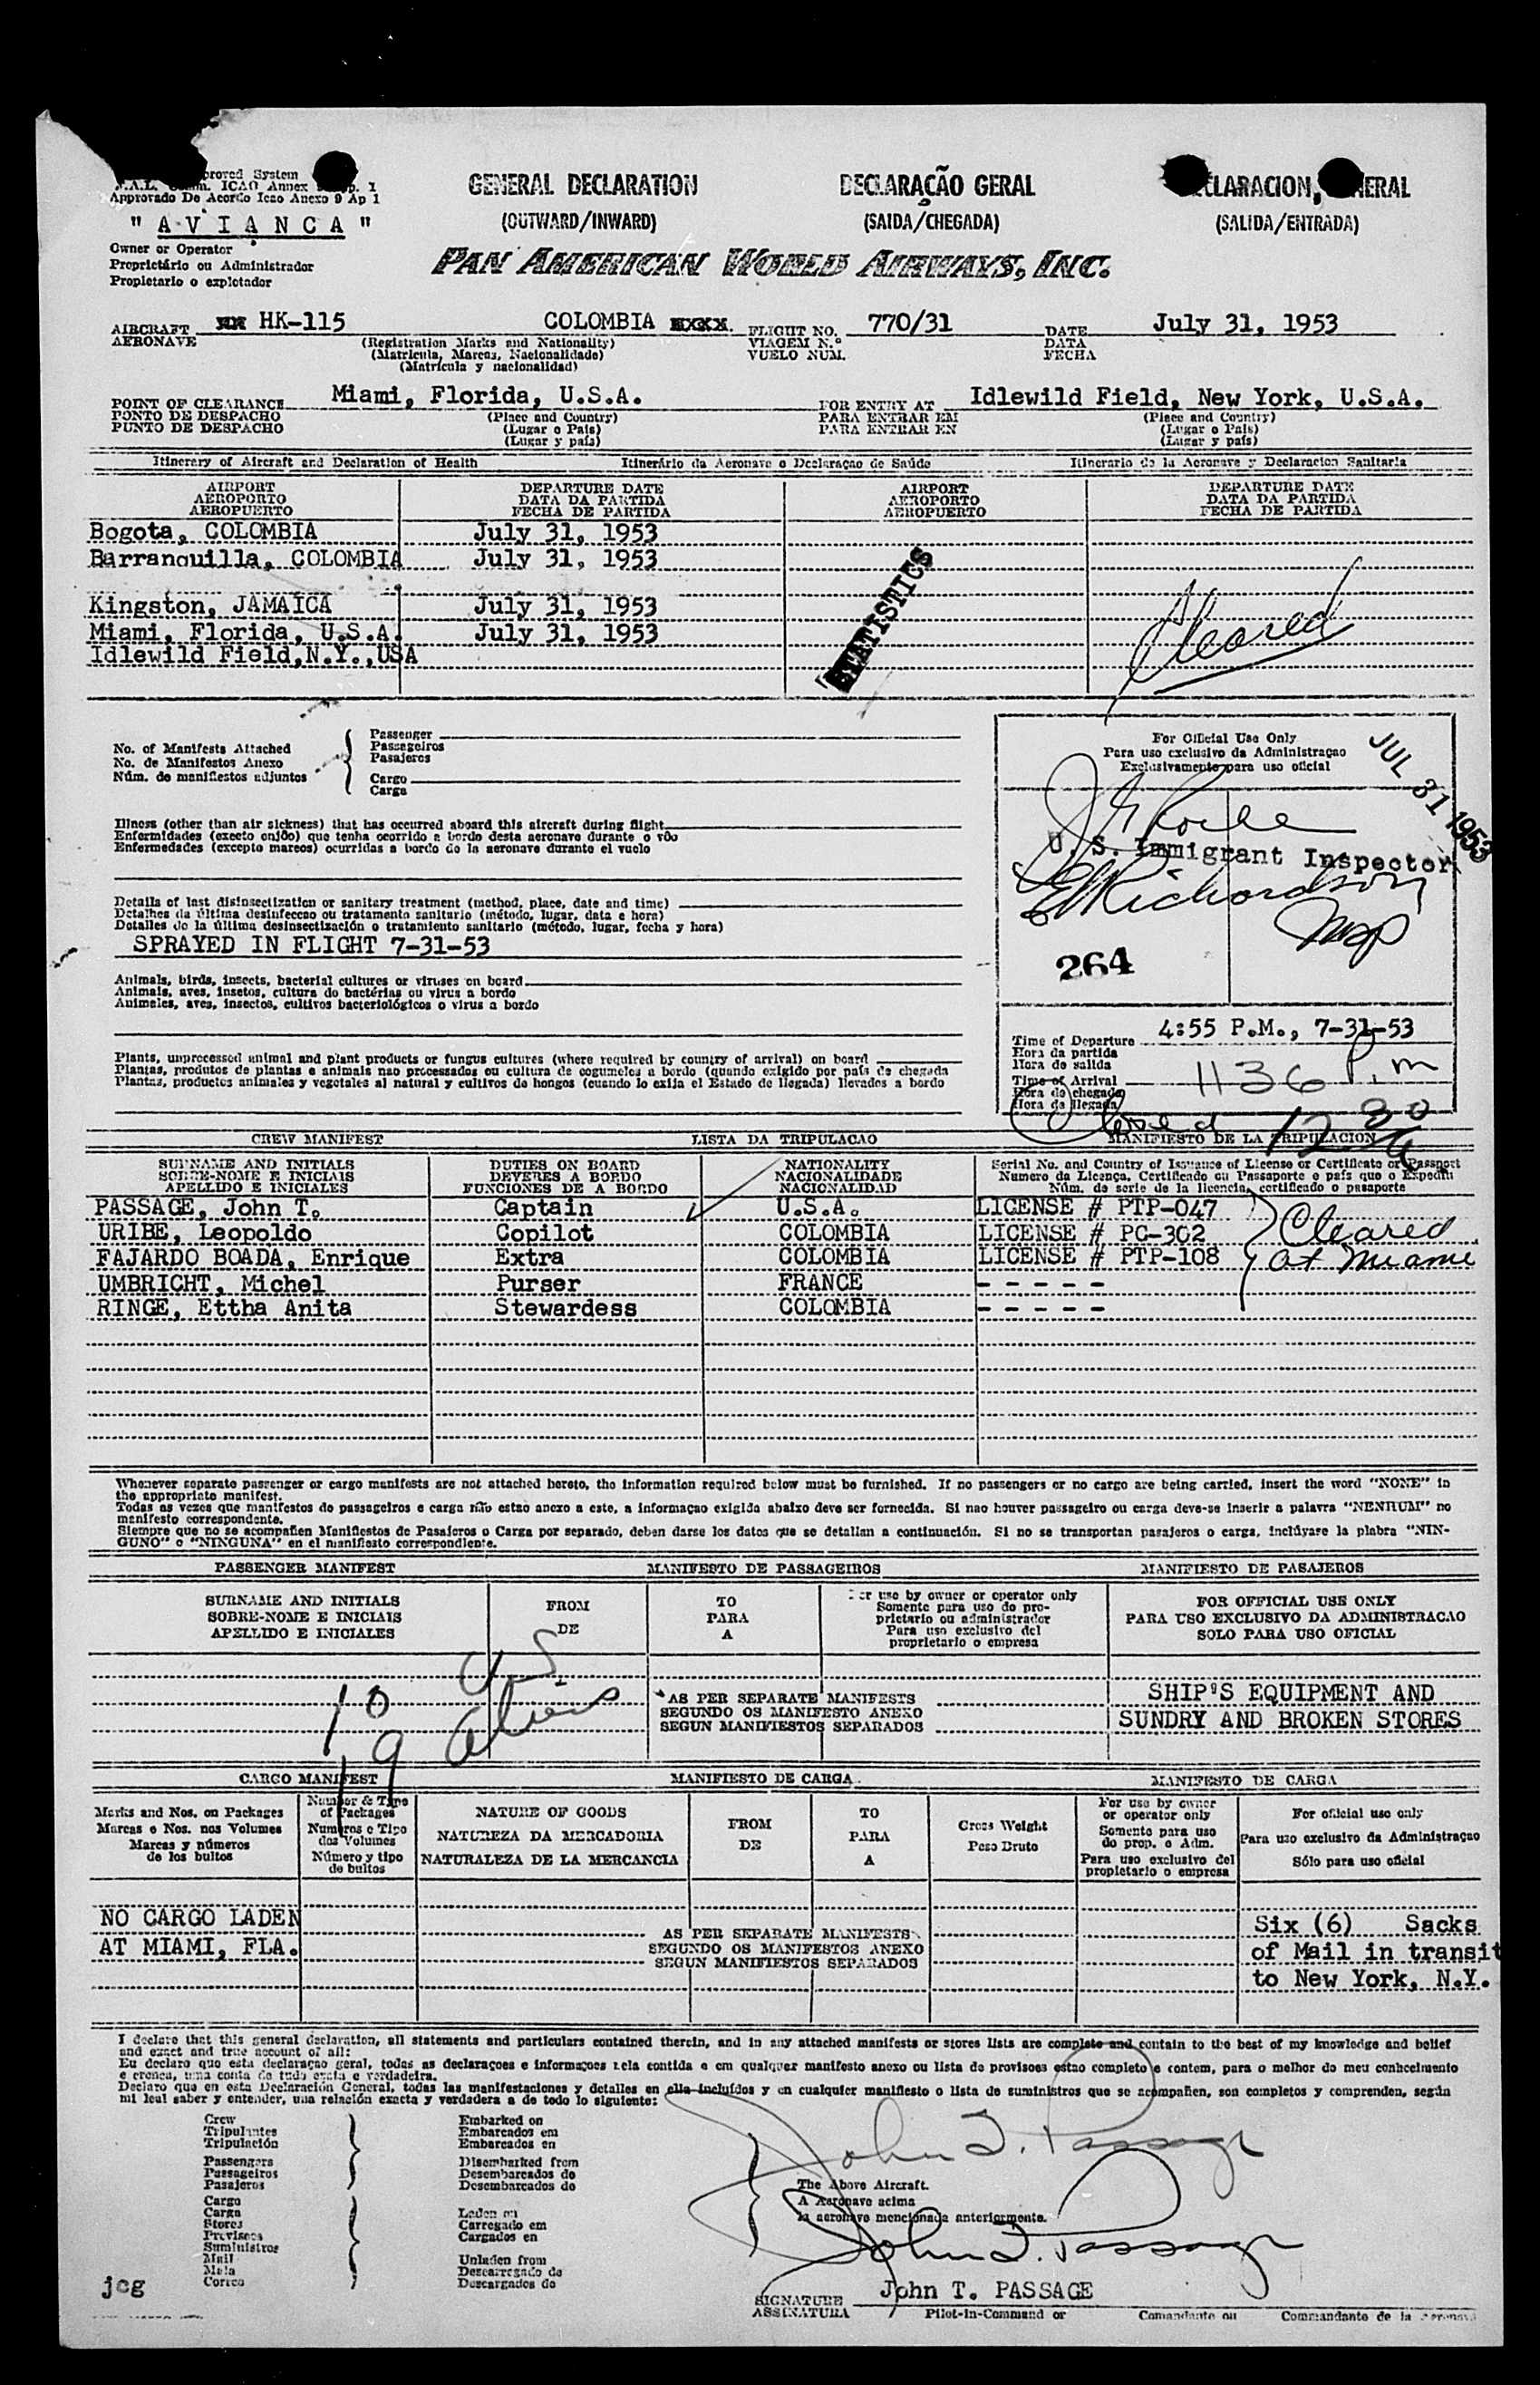 proved System
ICAO Annex 1
Approvado De Acordo Icao Anexo 9 Ap 1
" A V I A N C A "
Owner or Operator
Proprietário ou Administrador
Propietario o explotador
GENERAL DECLARATION
(OUTWARD/INWARD)
DECLARAÇÃO GERAL
(SAIDA/CHEGADA)
CLARACION, ERAL
(SALIDA/ENTRADA)
PAN AMERICAN WORLD AIRWAYS, INC.
AIRCRAFT HK-115 COLOMBIA FLIGHT NO. 770/31 DATE July 31, 1953
AERONAVE (Registration Marks and Nationality) VIAGEM N.º DATA
(Matricula, Marcas, Nacionalidade) VUELO NUM. FECHA
(Matrícula y nacionalidad)
POINT OF CLEARANCE Miami, Florida, U.S.A. FOR ENTRY AT Idlewild Field, New York, U.S.A.
PONTO DE DESPACHO (Place and Country) PARA ENTRAR EM (Place and Country)
PUNTO DE DESPACHO (Lugar o País) PARA ENTRAR EN (Lugar o País)
(Lugar y país) (Lugar y país)
Itinerary of Aircraft and Declaration of Health Itinerário da Aeronave o Declaraçao de Saúde Itinerario de la Aeronave y Declaracion Sanitaria
AIRPORT DEPARTURE DATE AIRPORT DEPARTURE DATE
AEROPORTO DATA DA PARTIDA AEROPORTO DATA DA PARTIDA
AEROPUERTO FECHA DE PARTIDA AEROPUERTO FECHA DE PARTIDA
Bogota, COLOMBIA July 31, 1953
Barranquilla, COLOMBIA July 31, 1953
Kingston, JAMAICA July 31, 1953
Miami, Florida, U.S.A. July 31, 1953
Idlewild Field,N.Y.,USA
STATISTICS
Cleared
No. of Manifests Attached
No. de Manifestos Anexo
Núm. de manifiestos adjuntos
Passenger
Passageiros
Pasajeros
Cargo
Carga
For Official Use Only
Para uso exclusivo da Administraçao
Exclusivamente para uso oficial
JUL 31 1953
U. S. Immigrant Inspector
Richardson
264
Illness (other than air sickness) that has occurred aboard this aircraft during flight
Enfermidades (exceto enjôo) que tenha ocorrido a bordo desta aeronave durante o vôo
Enfermedades (excepto mareos) ocurridas a bordo de la aeronave durante el vuelo
Details of last disinsectization or sanitary treatment (method, place, date and time)
Detalhes da última desinfeccao ou tratamento sanitario (método, lugar, data e hora)
Detalles de la última desinsectización o tratamiento sanitario (método, lugar, fecha y hora)
SPRAYED IN FLIGHT 7-31-53
Animals, birds, insects, bacterial cultures or viruses on board
Animais, aves, insetos, cultura do bactérias ou virus a bordo
Animales, aves, insectos, cultivos bacteriológicos o virus a bordo
Plants, unprocessed animal and plant products or fungus cultures (where required by country of arrival) on board
Plantas, produtos de plantas e animais nao processados ou cultura de cogumelos a bordo (quando exigido por país de chegada
Plantas, productos animales y vegetales al natural y cultivos de hongos (cuando lo exija el Estado de llegada) llevados a bordo
Time of Departure 4:55 P.M., 7-31-53
Hora da partida
Hora de salida
Time of Arrival 1136 P.m
Hora do chegada
Hora da llegada
Closed 12 30
CREW MANIFEST LISTA DA TRIPULACAO MANIFIESTO DE LA TRIPULACION
SURNAME AND INITIALS DUTIES ON BOARD NATIONALITY Serial No. and Country of Issuance of License or Certificate or Passport
SOBRE-NOME E INICIAIS DEVERES A BORDO NACIONALIDADE Numero da Licença, Certificado ou Passaporte o país que o Expediu
APELLIDO E INICIALES FUNCIONES DE A BORDO NACIONALIDAD Núm. de serie de la licencia, certificado o pasaporte
PASSAGE, John T. Captain U.S.A. LICENSE # PTP-047
URIBE, Leopoldo Copilot COLOMBIA LICENSE # PC-302
FAJARDO BOADA, Enrique Extra COLOMBIA LICENSE # PTP-108
UMBRICHT, Michel Purser FRANCE - - - - -
RINGE, Ettha Anita Stewardess COLOMBIA - - - - -
Cleared
at Miami
Whenever separate passenger or cargo manifests are not attached hereto, the information required below must be furnished. If no passengers or no cargo are being carried, insert the word "NONE" in
the appropriate manifest.
Todas as vezes que manifestos de passageiros e carga não estao anexo a este, a informaçao exigida abaixo deve ser fornecida. Si nao houver passageiro ou carga deve-se inserir a palavra "NENHUM" no
manifesto correspondente.
Siempre que no se acompañen Manifiestos de Pasajeros o Carga por separado, deben darse los datos que se detallan a continuación. Si no se transportan pasajeros o carga, inclúyase la plabra "NIN-
GUNO" o "NINGUNA" en el manifiesto correspondiente.
PASSENGER MANIFEST MANIFESTO DE PASSAGEIROS MANIFIESTO DE PASAJEROS
SURNAME AND INITIALS FROM TO For use by owner or operator only FOR OFFICIAL USE ONLY
SOBRE-NOME E INICIAIS DE PARA Somente para uso do pro- PARA USO EXCLUSIVO DA ADMINISTRACAO
APELLIDO E INICIALES A prietario ou administrador SOLO PARA USO OFICIAL
Para uso exclusivo del
proprietario o empresa
10 US.
9 aliens
19
AS PER SEPARATE MANIFESTS
SEGUNDO OS MANIFESTO ANEXO
SEGUN MANIFIESTOS SEPARADOS
SHIP'S EQUIPMENT AND
SUNDRY AND BROKEN STORES
CARGO MANIFEST MANIFIESTO DE CARGA MANIFESTO DE CARGA
Marks and Nos. on Packages
Marcas e Nos. nos Volumes
Marcas y números
de los bultos
Number & Type
of Packages
Numeros e Tipo
dos Volumes
Número y tipo
de bultos
NATURE OF GOODS
NATUREZA DA MERCADORIA
NATURALEZA DE LA MERCANCIA
FROM
DE
TO
PARA
A
Gross Weight
Peso Bruto
For use by owner
or operator only
Somente para uso
do prop. o Adm.
Para uso exclusivo del
propietario o empresa
For official use only
Para uso exclusivo da Administraçao
Sólo para uso oficial
NO CARGO LADEN
AT MIAMI, FLA.
AS PER SEPARATE MANIFESTS
SEGUNDO OS MANIFESTOS ANEXO
SEGUN MANIFIESTOS SEPARADOS
Six (6) Sacks
of Mail in transit
to New York, N.Y.
I declare that this general declaration, all statements and particulars contained therein, and in any attached manifests or stores lists are complete and contain to the best of my knowledge and belief
and exact and true account of all:
Eu declaro que esta declaraçao geral, todas as declaraçoes e informaçoes nela contida e em qualquer manifesto anexo ou lista de provisoes estao completo e contem, para o melhor do meu conhecimento
e crenca, uma conta de tudo exata e verdadeira.
Declaro que en esta Declaración General, todas las manifestaciones y detalles en ella incluídos y en cualquier manifiesto o lista de suministros que se acompañen, son completos y comprenden, según
mi leal saber y entender, una relación exacta y verdadera a de todo lo siguiente:
Crew
Tripulantes
Tripulación
Passengers
Passageiros
Pasajeros
Cargo
Carga
Stores
Provisoes
Suministros
Mail
Mala
Correo
Embarked on
Embarcados em
Embarcados en
Disembarked from
Desembarcados do
Desembarcados de
Laden on
Carregado em
Cargados en
Unladen from
Descarregado do
Descargados de
John T. Passage
The Above Aircraft.
A Aeronave acima
la aeronave mencionada anteriormente.
John T. Passage
jcg
John T. PASSAGE
SIGNATURE
ASSINATURA Pilot-in-Command or Comandante ou Commandante de la Aeronave